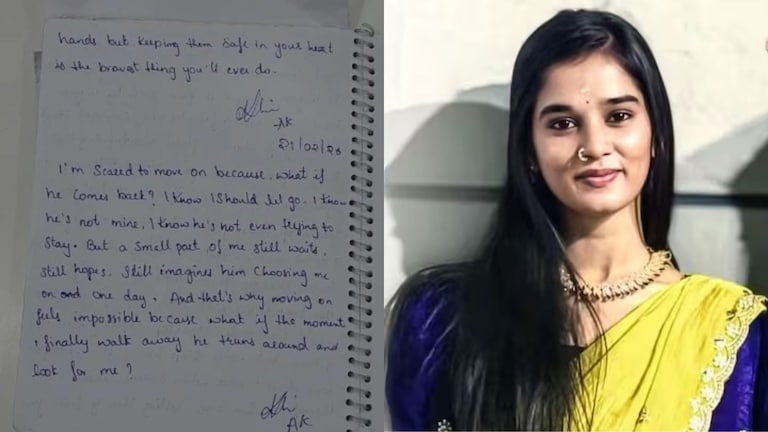 hands but keeping them safe in your heart
is the bravest thing you'll ever do.
AK
21/02/26
I'm Scared to move on because, what if
he comes back? I know I should let go. I know
he's not mine, I know he's not even trying to
stay. But a small part of me still waits,
still hopes, still imagines him choosing me
on one day. And that's why moving on
feels impossible because what if the moment
I finally walk away he truns around and
look for me?
AK